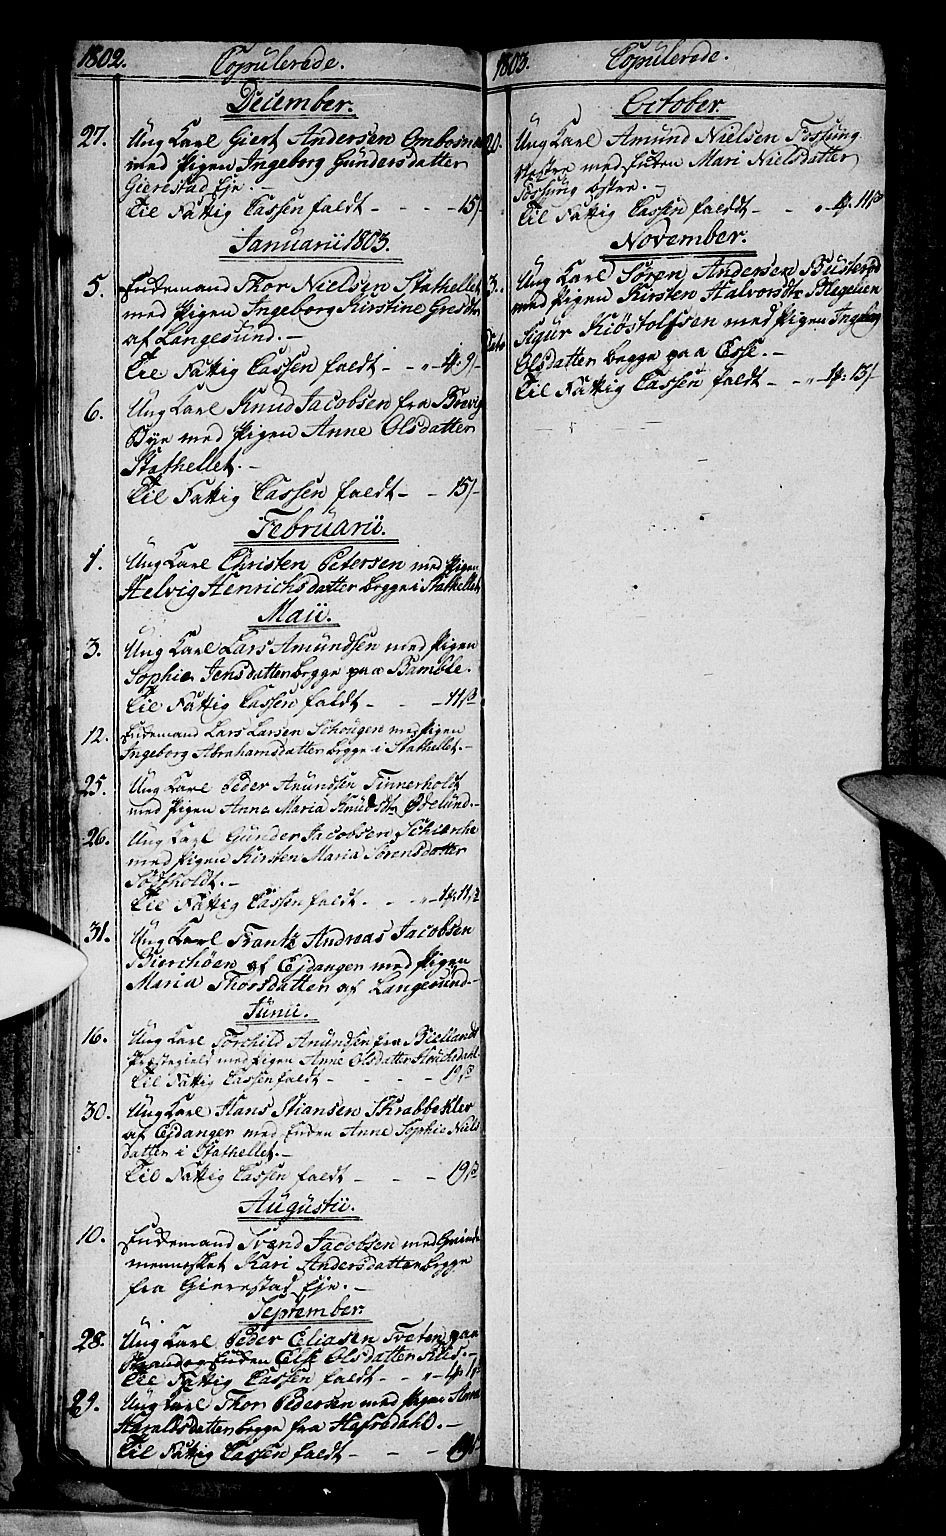 1802. Copulerede.
December.
27. Ung Karl Giert Andersen Ombosnæs
med Pigen Ingeborg Gundersdatter
Gierestad Eje.-
Til Fattig Cassen faldt - - - 15/-
Januarii 1803.
5. Enkemand Thor Nielsen Stathellet
med Pigen Ingeborg Kirstine
af Langesund.-
Til Fattig Cassen faldt - - „- 4. 9/-
6. Ung Karl Knud Jacobsen fra Brevig
Bye med Pigen Anne Olsdatter
Stathellet.-
Til Fattig Cassen faldt - - 15/-
Februarii.
1. Ung Karl Christen Petersen med Pigen
Helvig Henrichsdatter begge i Stathellet
Maii.
3. Ung Karl Lars Amundsen med Pigen
Sophie Jensdatter begge paa Bamble.
Til Fattig Cassen faldt - - - 11 ß
12. Enkemand Lars Larsen Schougen med Pigen
Ingeborg Abrahamsdatter begge i Stathellet.-
25. Ung Karl Peder Anundsen Finnerholdt
med Pigen Anne Maria Knudsdtr Ødelund.-
26. Ung Karl Gunder Jacobsen
med Pigen Kirsten Maria Sørensdatter

Til Fattig Cassen faldt. - - „- 1 . 11 ß
31. Ung Karl Frantz Andreas Jacobsen
Bierchøen af Ejdanger med Pigen
Maria Thorsdatter af Langesund.-
Junii.
16. Ung Karl Torchild Anundsen fra Bielland
Præstegield med Pigen Anne Olsdatter
Til Fattig Cassen faldt - - - 19 ß
30. Ung Karl Hans Stiansen Skrabbekler
af Ejdanger med Enken Anne Sophie Niels
datter i Stathellet.-
Til Fattig Cassen faldt - - - 19 ß
Augustii.
10. Enkemand Svend Jacobsen med Qvinde
mennesket Kari Andersdatter begge
fra Gierrestad Eje.-
September.
28. Ung Karl Peder Eliasen Tveten paa
og Enken Else Olsdatter
Til Fattig Cassen faldt - - „-
29. Ung Karl Thor Pedersen med Pigen Anne
Haraldsdatter begge fra Hafsdahl.-
Til Fattig Cassen faldt - - -
1803. Copulerede.
October.
20. Ung Karl Amund Nielsen Fossung
Vestre med Enken Mari Nielsdatter
Fossung østre.-
Til Fattig Cassen faldt - - „- 4. 11 ß
November.
3. Ung Karl Søren Andersen Busterød
med Pigen Kirsten Halvorsdtr Blegelien
Dito Sigur Kiøstolfsen med Pigen Ingeborg
Olsdatter begge paa Esse.-
Til Fattig Cassen faldt - - „- 1 . 13/-